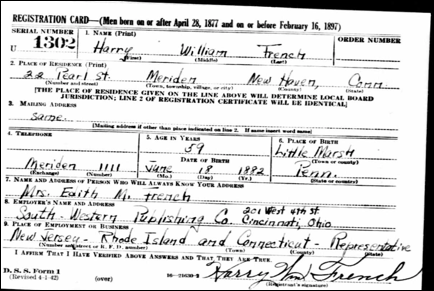 REGISTRATION CARD—(Men born on or after April 28, 1877 and on or before February 16, 1897)
SERIAL NUMBER 1. NAME (Print) ORDER NUMBER
U 1302 Harry William French
(First) (Middle) (Last)
2. PLACE OF RESIDENCE (Print)
22 Pearl St. Meriden New Haven, Conn
(Number and street) (Town, township, village, or city) (County) (State)
[THE PLACE OF RESIDENCE GIVEN ON THE LINE ABOVE WILL DETERMINE LOCAL BOARD
JURISDICTION; LINE 2 OF REGISTRATION CERTIFICATE WILL BE IDENTICAL]
3. MAILING ADDRESS
same
[Mailing address if other than place indicated on line 2. If same insert word same]
4. TELEPHONE 5. AGE IN YEARS 6. PLACE OF BIRTH
59 Little Marsh
DATE OF BIRTH (Town or county)
Meriden 1111 June 18 1882 Penn.
(Exchange) (Number) (Mo.) (Day) (Yr.) (State or country)
7. NAME AND ADDRESS OF PERSON WHO WILL ALWAYS KNOW YOUR ADDRESS
Mrs. Edith M. French
8. EMPLOYER'S NAME AND ADDRESS 201 West 4th St
South-Western Publishing Co. Cincinnati, Ohio
9. PLACE OF EMPLOYMENT OR BUSINESS
New Jersey - Rhode Island and Connecticut - Representative
(Number and street or R. F. D. number) (Town) (County) (State)
I AFFIRM THAT I HAVE VERIFIED ABOVE ANSWERS AND THAT THEY ARE TRUE.
D. S. S. Form 1
(Revised 4-1-42) (over) Harry Wm. French
(Registrant's signature)